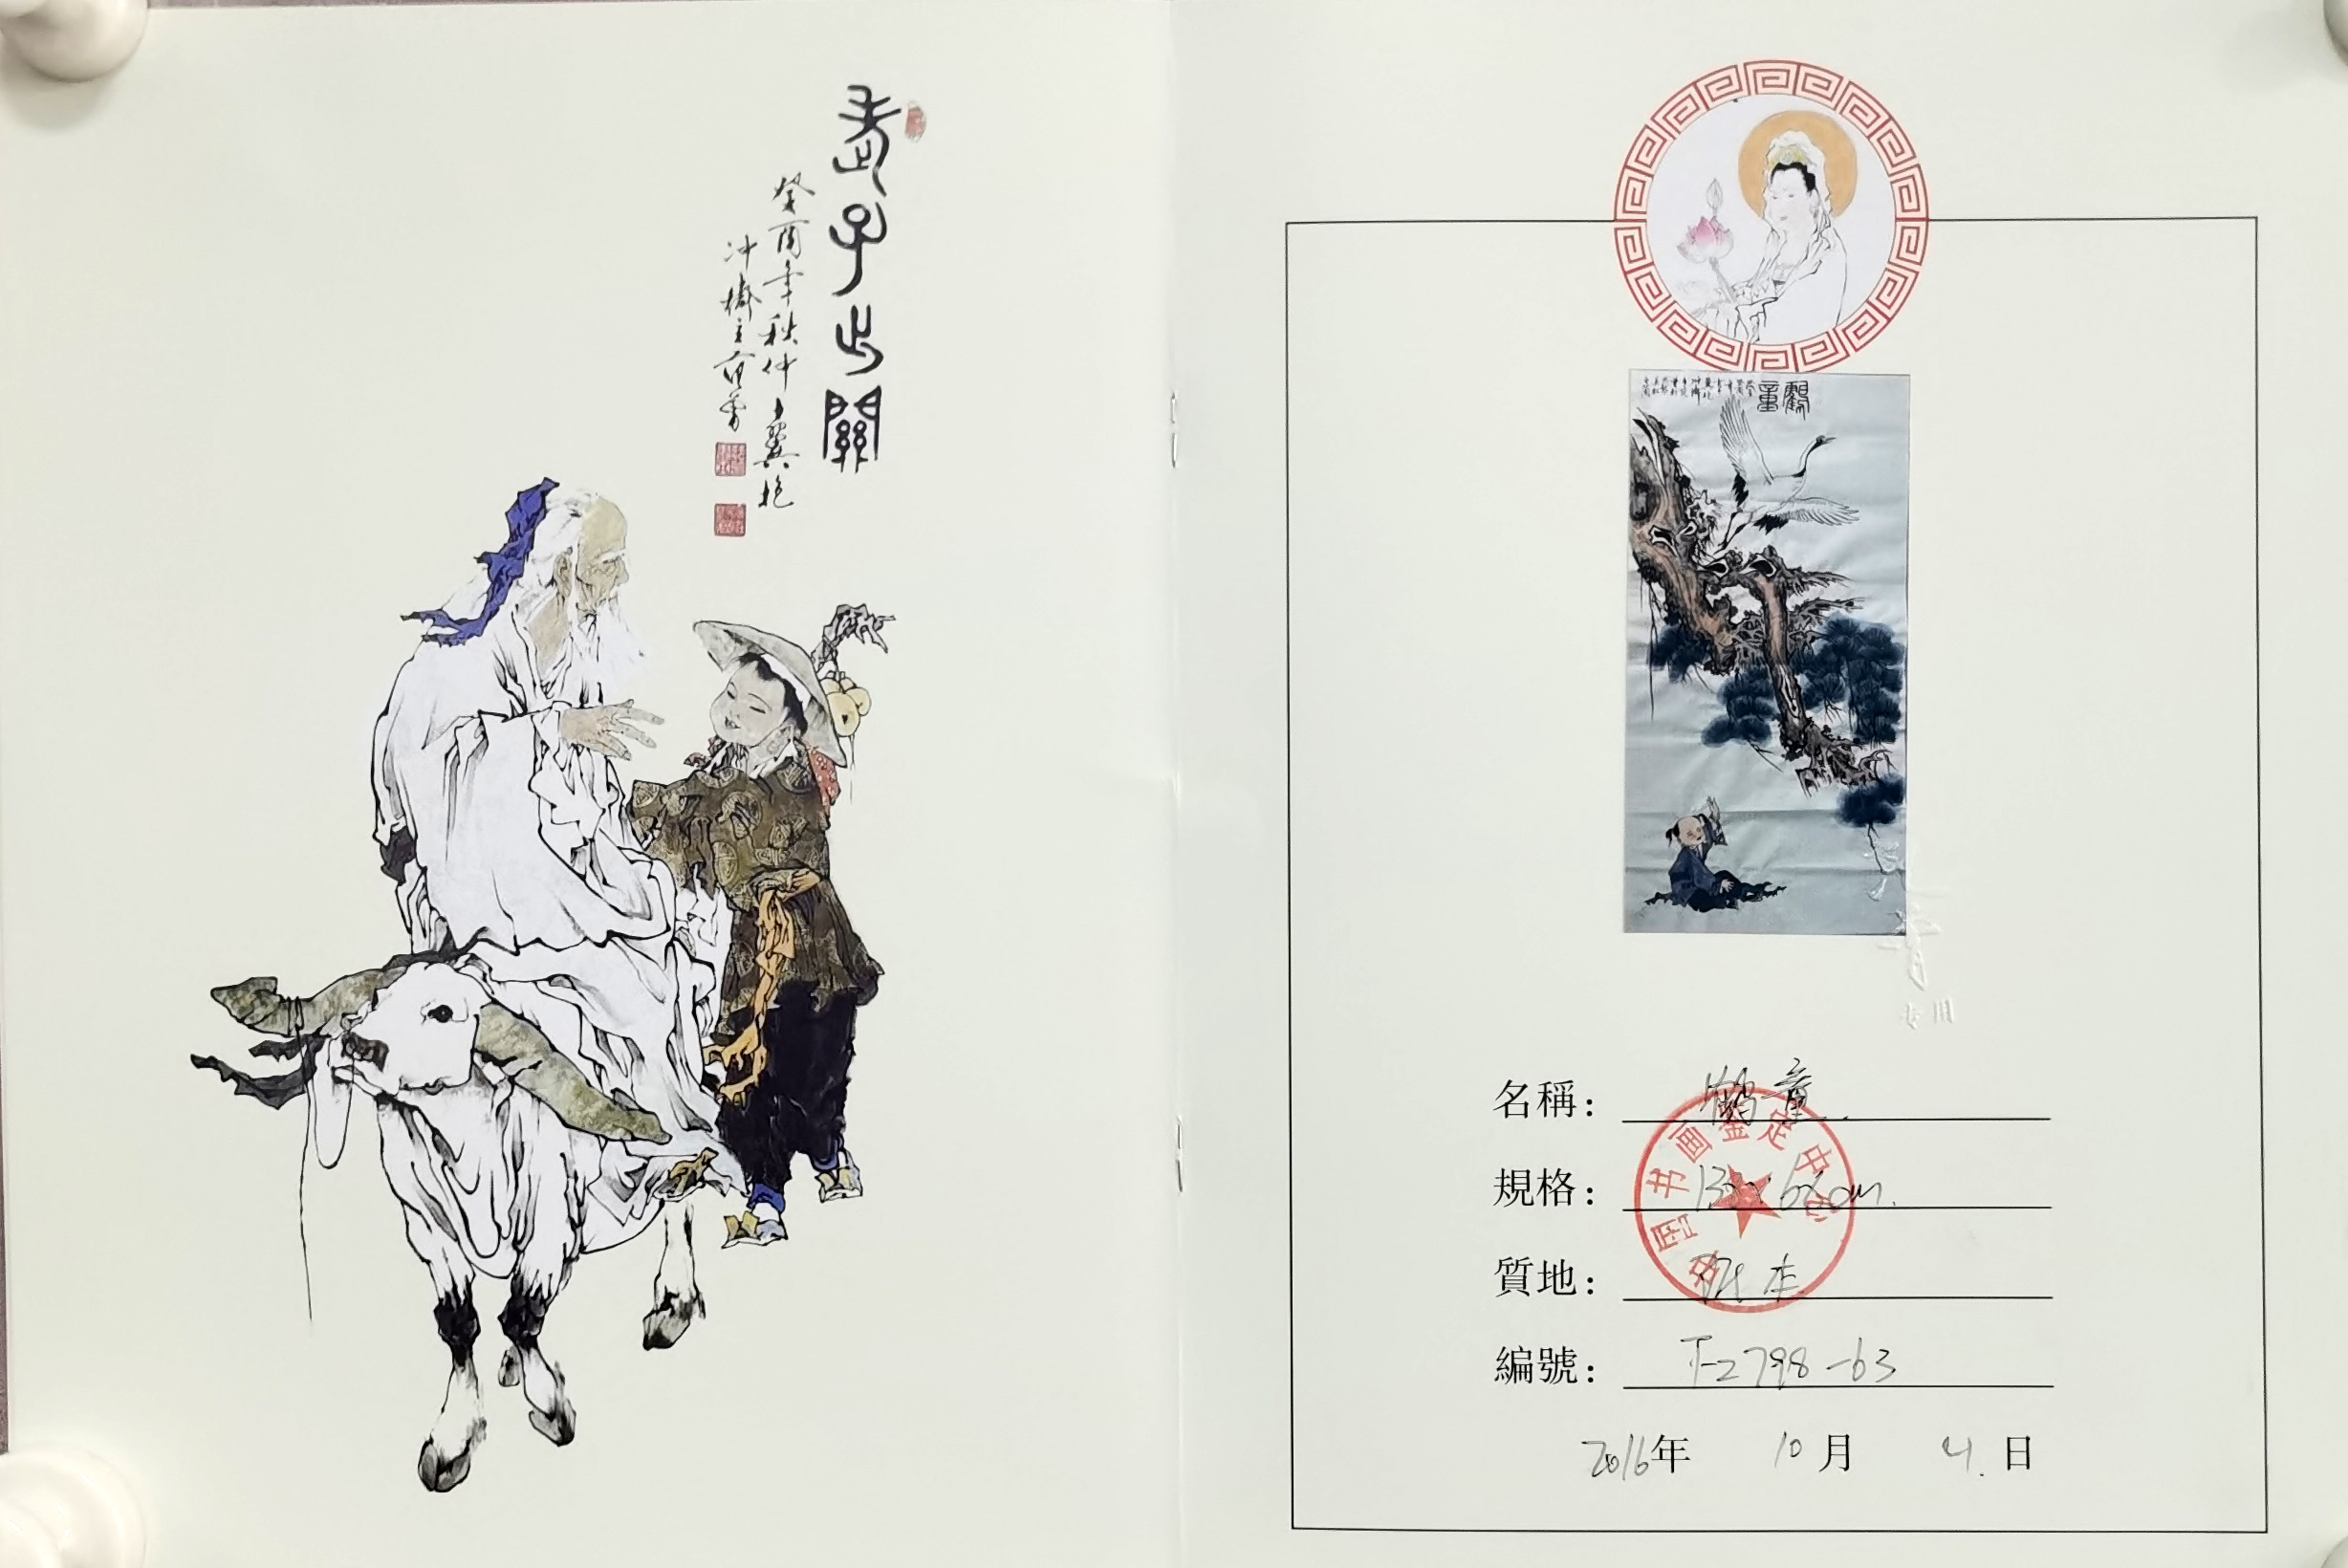 老子出關
癸酉年秋仲十翼抱
冲齋主范曾
鶴童
专用
名稱: 鹤童
規格:
質地: 纸本
編號: F-2798-63
中国书画鉴定中心
2016年 10月 4.日